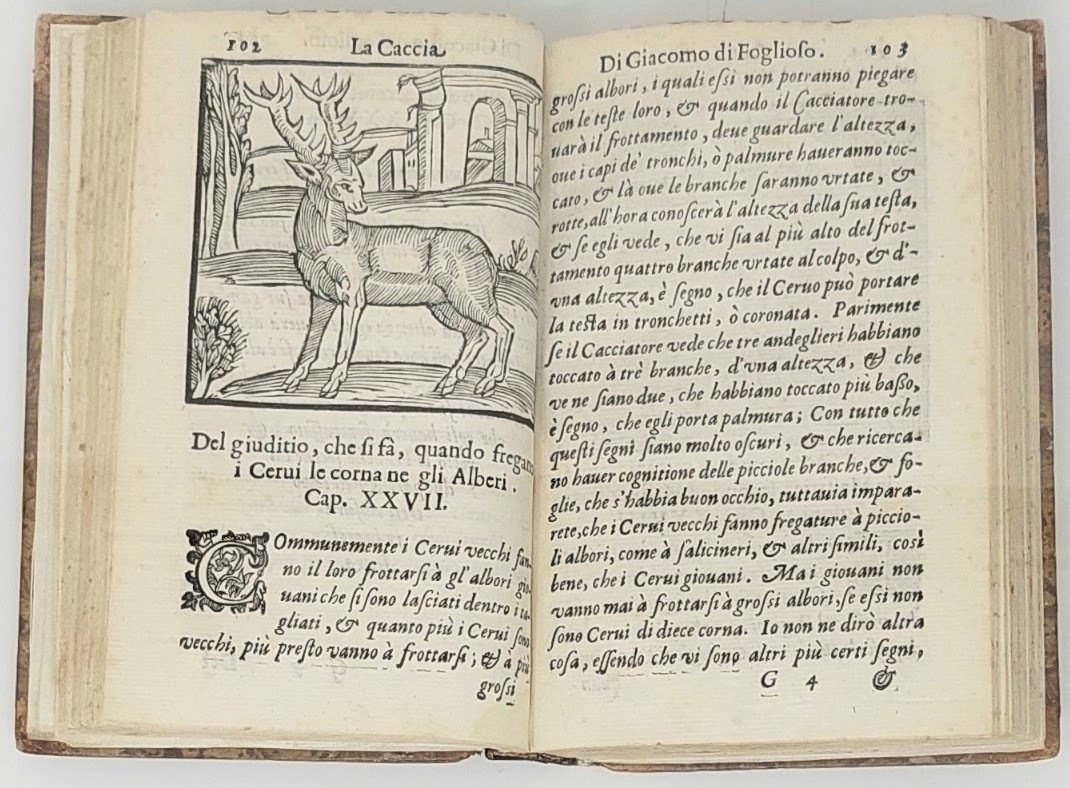 102 La Caccia
Del giuditio, che si fà, quando fregano
i Cerui le corna ne gli Alberi.
Cap. XXVII.
COmmunemente i Cerui vecchi ſan-
no il loro frottarſi à gl'albori gio-
uani che ſi ſono laſciati dentro i ta-
gliati, & quanto più i Cerui ſono
vecchi, più preſto vanno à frottarſi; & à più
groſſi
Di Giacomo di Foglioſo. 103
groſſi albori, i quali eſsi non potranno piegare
con le teſte loro, & quando il Cacciatore tro-
uarà il frottamento, deue guardare l'altezza,
oue i capi de' tronchi, ò palmure haueranno toc-
cato, & là oue le branche ſaranno vrtate, &
rotte, all'hora conoſcerà l'altezza della ſua teſta,
& ſe egli vede, che vi ſia al più alto del frot-
tamento quattro branche vrtate al colpo, & d'-
vna altezza, è ſegno, che il Ceruo può portare
la teſta in tronchetti, ò coronata. Parimente
ſe il Cacciatore vede che tre andeglieri habbiano
toccato à trè branche, d'vna altezza, & che
ve ne ſiano due, che habbiano toccato più baſſo,
è ſegno, che egli porta palmura; Con tutto che
queſti ſegni ſiano molto oſcuri, & che ricerca-
no hauer cognitione delle picciole branche, & fo-
glie, che s'habbia buon occhio, tuttauia impara-
rete, che i Cerui vecchi fanno fregature à piccio-
li albori, come à ſalicineri, & altri ſimili, così
bene, che i Cerui giouani. Ma i giouani non
vanno mai à frottarſi à groſſi albori, ſe eſsi non
ſono Cerui di diece corna. Io non ne dirò altra
coſa, eſſendo che vi ſono altri più certi ſegni,
G 4 &